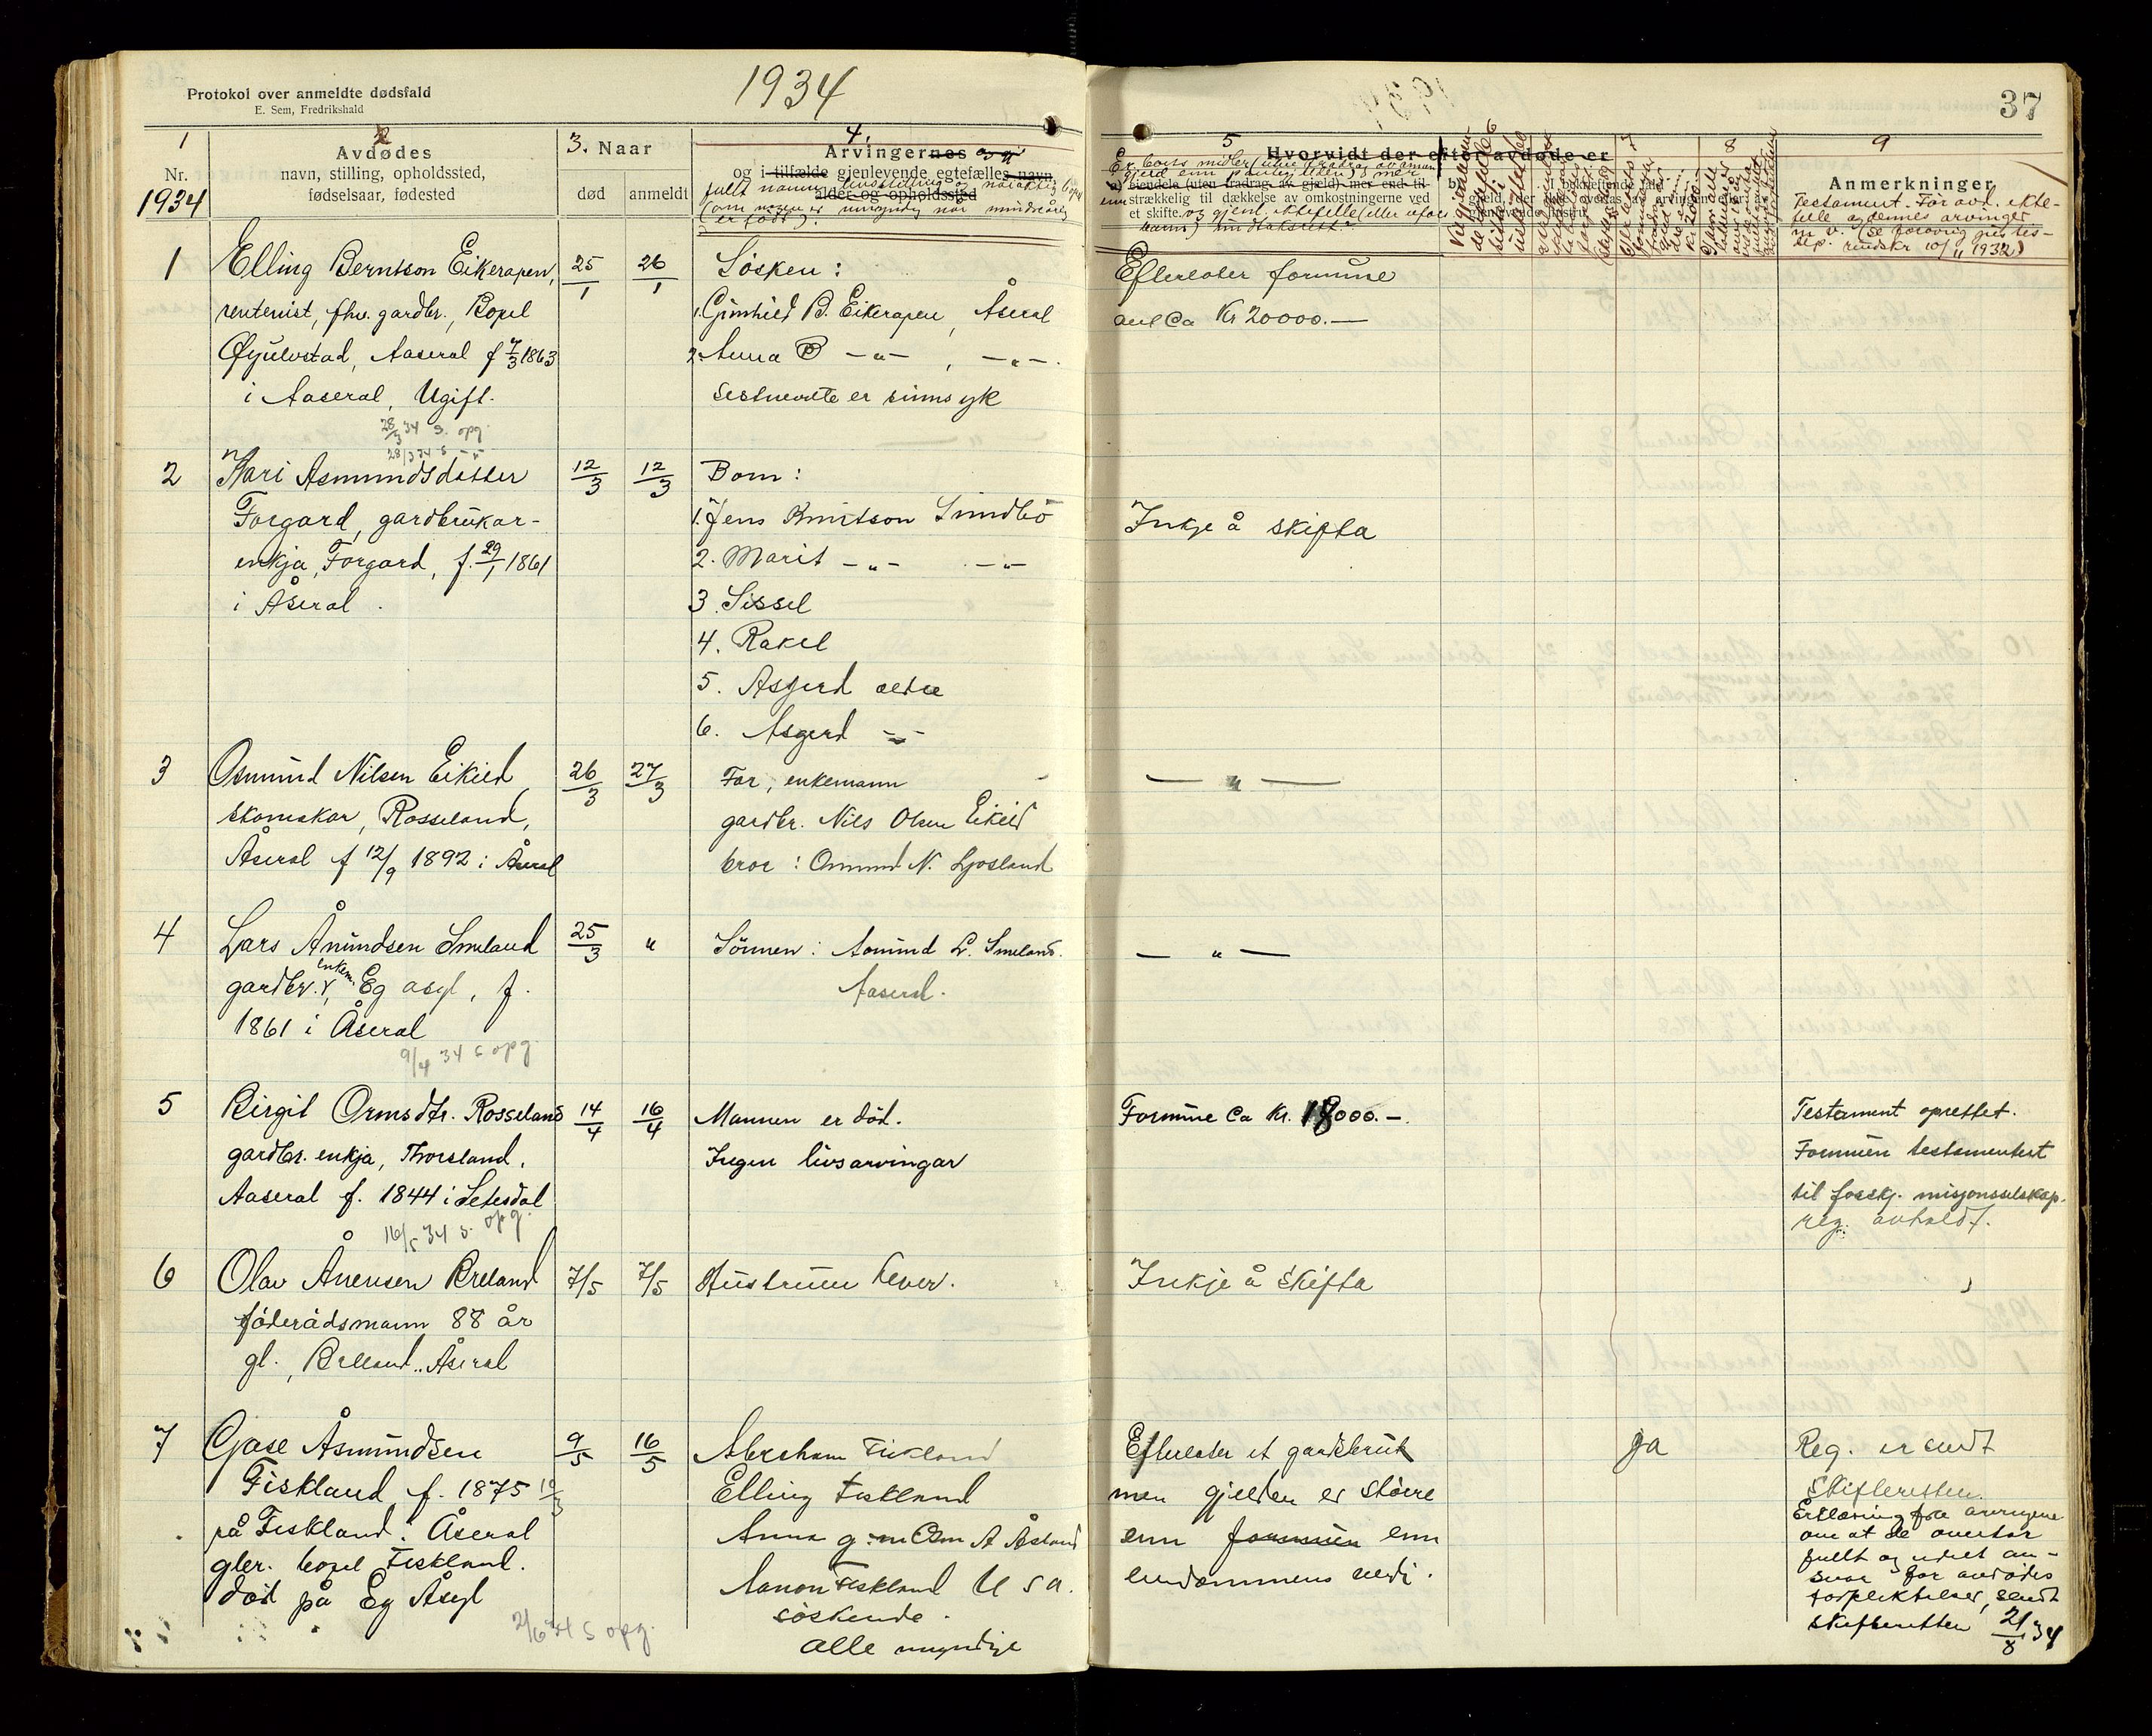 Protokol over anmeldte dødsfald
E. Sem, Fredrikshald
1934
37
1
2
3. Naar
4.
5
8
9
Nr.
1934
Avdødes
navn, stilling, opholdssted,
fødselsaar, fødested
død
anmeldt
Arvingernes og
og i tilfælde gjenlevende egtefælles navn,
alder og opholdssted
Hvorvidt der efter avdøde er
a) eiendele (uten fradrag av gjæld) mer end til-
strækkelig til dækkelse av omkostningerne ved
et skifte.
Anmerkninger
Testament. For avd. ekte-
felle og dennes arvinger
m v.
1
Elling Berntson Eikerapen,
rentenist, fhv. gardbr., Bopel
Øyulvstad, Aaseral f 7/3 1863
i Aaseral, Ugift.
28/3 34 s. opg.
25/1
26/1
Søsken:
1. Gunhild B. Eikerapen, Åseral
2. Anna B —"—, —"—.
Sistnevnte er sinnsyk
Efterlater formue
anl Ca Kr 20000.—
2
28/3 34 s —"—
Kari Asmundsdatter
Forgard, gardbrukar-
enkja, Forgard, f. 29/1 1861
i Åseral.
12/3
12/3
Born:
1. Jens Knutson Sundbö
2. Marit —"— —"—
3. Sissel
4. Rakel
5. Asgerd eldre
6. Asgerd —"—
Inkje å skifta
3
Osmund Nilsen Eikild,
skomakar, Rosseland,
Åseral f 12/9 1892 i Åseral
26/3
27/3
Far, enkemann
gardbr. Nils Olsen Eikild
bror: Osmund N. Ljosland
— " —
4
Lars Ånundsen Smeland
gardbr. v, enkem. Eg asyl, f.
1861 i Åseral
9/4 34 s opg.
25/3
"
Sönnen: Aanund L. Smeland.
Aaseral.
— " —
5
Birgit Ormsdtr. Rosseland
gardbr. enkja, Thorsland,
Aaseral f. 1844 i Setesdal
16/5 34 s. opg.
14/4
16/4
Mannen er död.
Ingen livsarvingar
Formue Ca Kr. 18000.—.
Testament oprettet.
Formuen testamentert
til forskj. misjonsselskap.
reg. avholdt.
6
Olav Ånensen Breland
föderådsmann 88 år
gl., Breland, Åseral
7/5
7/5
Hustruen lever.
Inkje å skifta
7
Gjase Åsmundsen
Fiskland f. 1875 10/3
på Fiskland i Åseral
gbr. bopel Fiskland.
död på Eg Asyl
2/6 34 s opg.
9/5
16/5
Abraham Fiskland
Elling Fiskland
Anna g. m Osm A Åsland
Aanon Fiskland U S A.
söskende.
alle myndige
Efterlater et gardsbruk
men gjelden er större
enn formuen enn
eiendommens verdi.
ja
Reg. er sendt
Skifteretten.
Erklæring fra arvingene
om at de overtar
fullt og udelt an-
svar for avdödes
forpliktelser, sendt
skifteretten 21/8 34